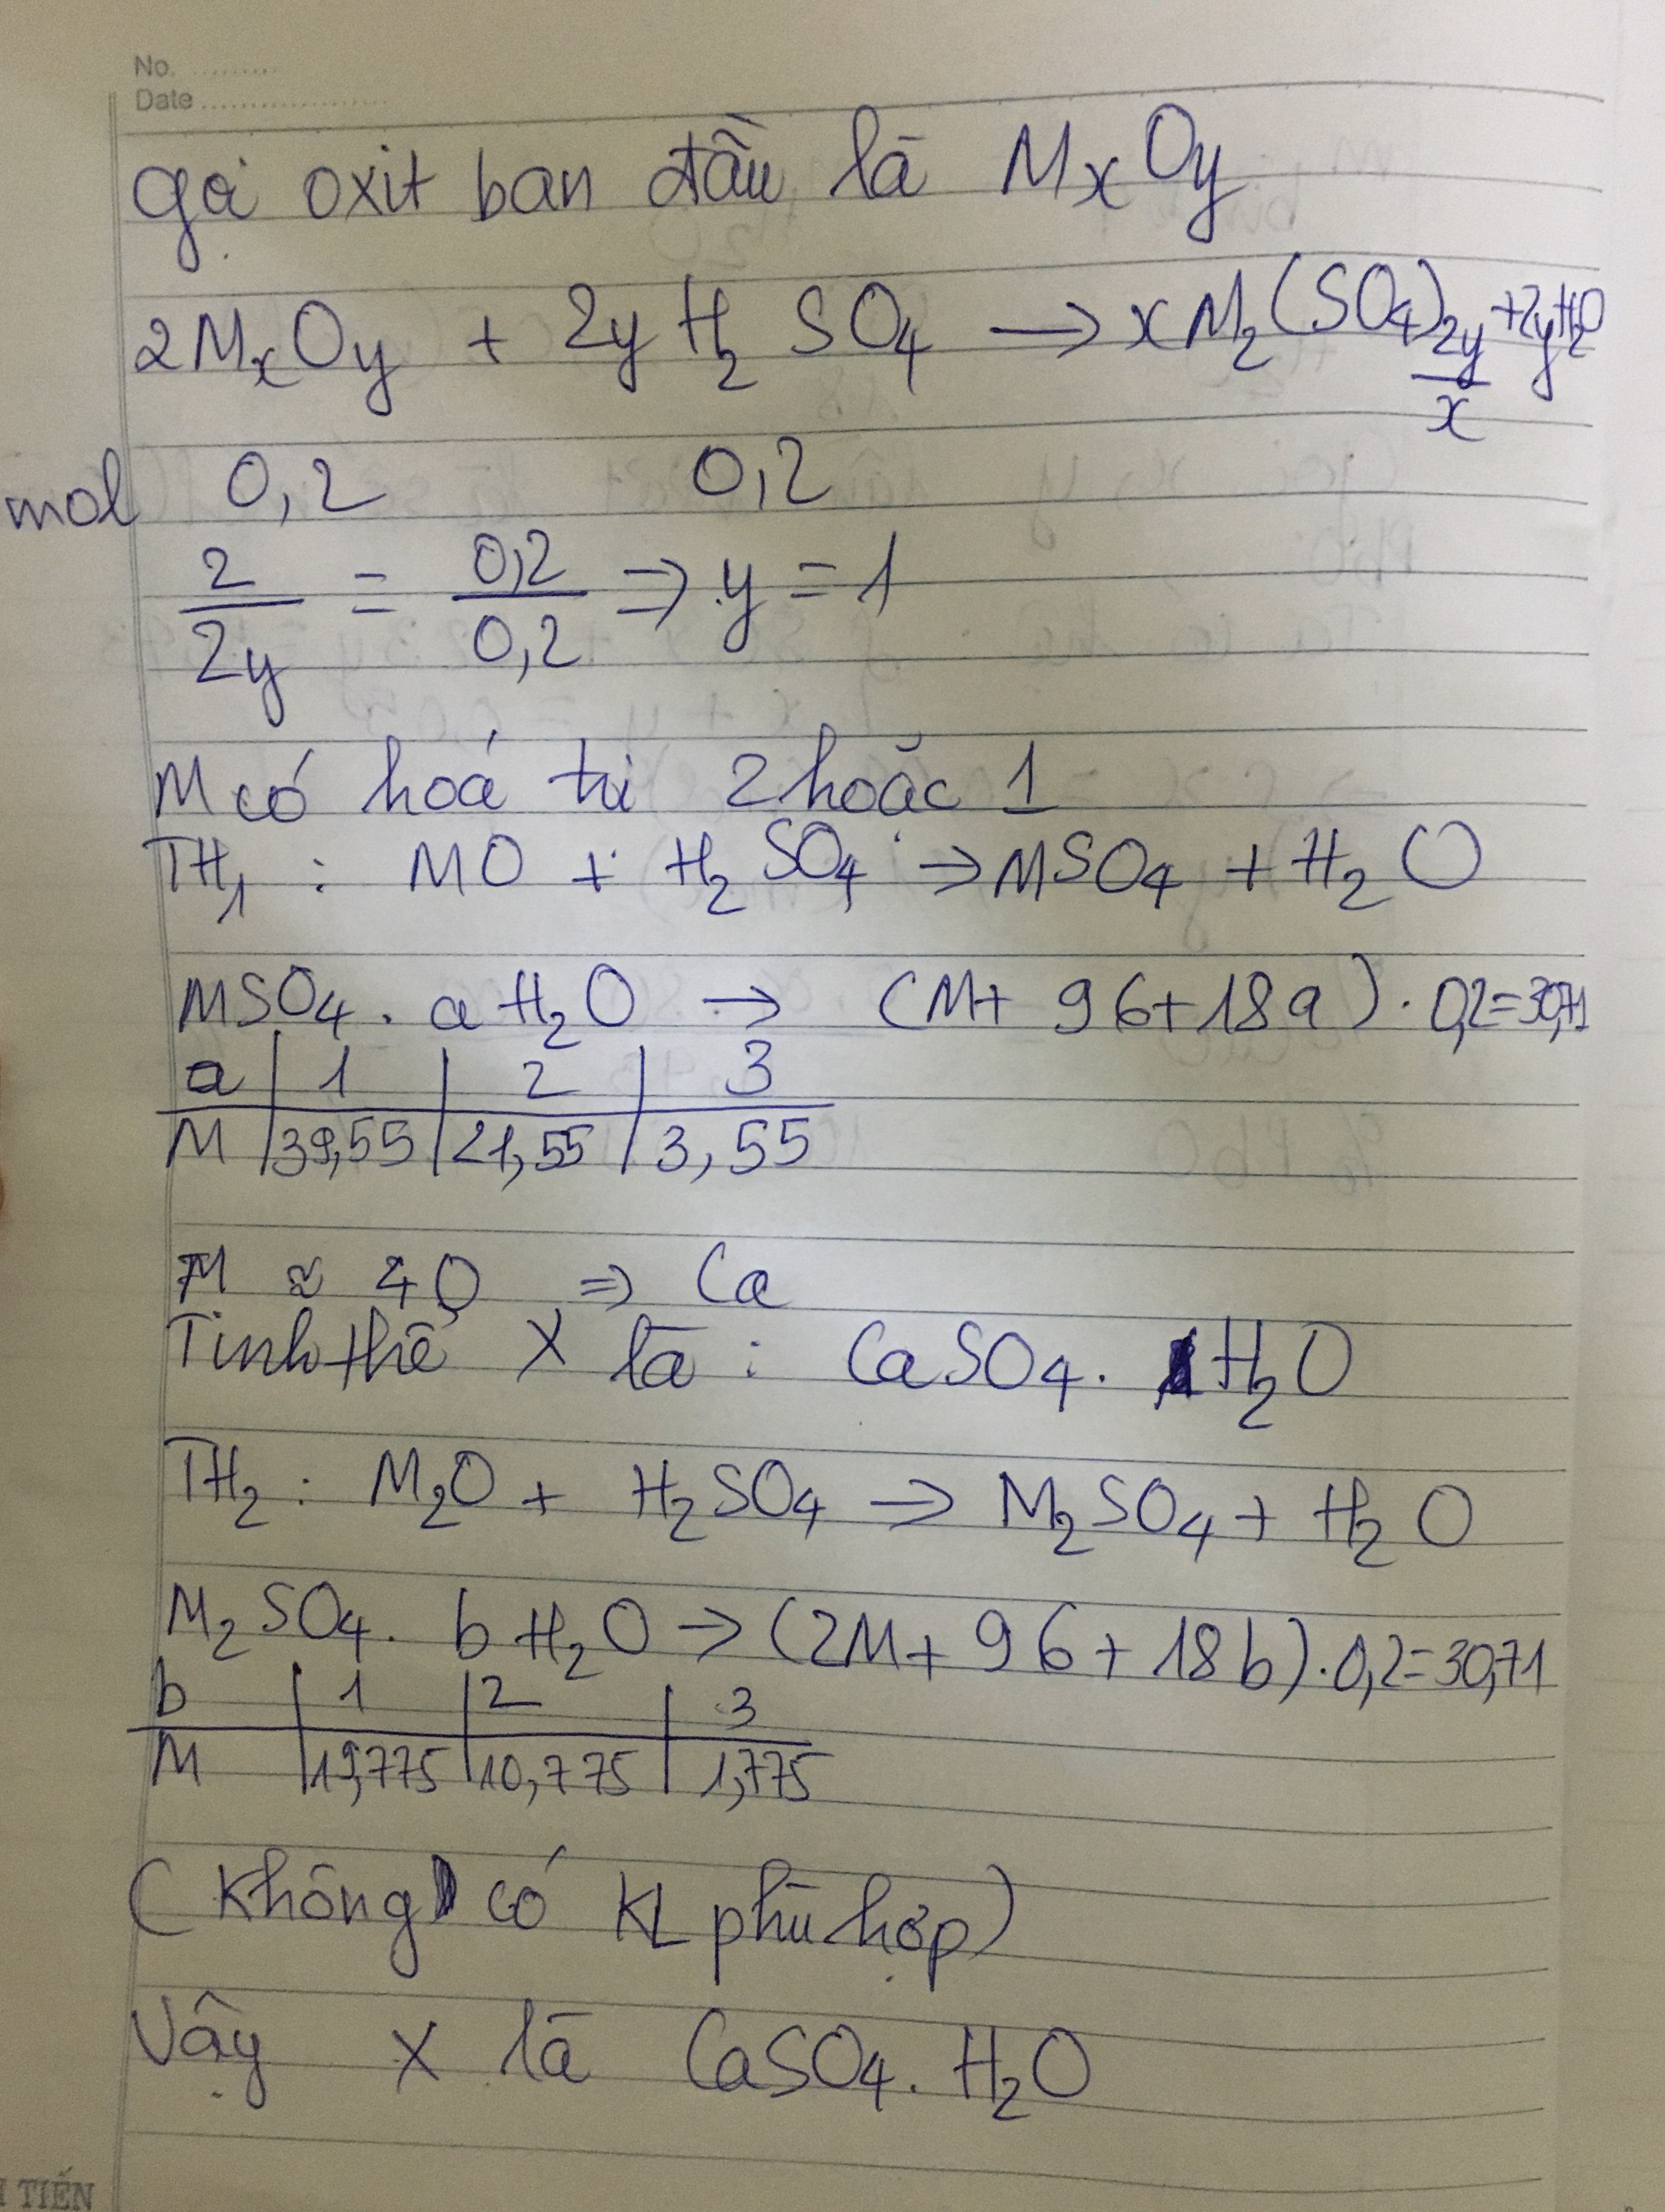 No. .........
Date ...................
Gọi oxit ban đầu là MxOy
2MxOy + 2yH2SO4 → xM2(SO4)2y/x + 2yH2O
mol 0,2 0,2
2/2y = 0,2/0,2 ⇒ y = 1
M có hoá trị 2 hoặc 1
TH1 : MO + H2SO4 → MSO4 + H2O
MSO4 . aH2O → (M + 96 + 18a) . 0,2 = 30,71
a | 1 | 2 | 3
M | 39,55 | 21,55 | 3,55
M ≈ 40 ⇒ Ca
Tinh thể X là : CaSO4 . 1H2O
TH2 : M2O + H2SO4 → M2SO4 + H2O
M2SO4 . bH2O → (2M + 96 + 18b) . 0,2 = 30,71
b | 1 | 2 | 3
M | 19,775 | 10,775 | 1,775
(Không có KL phù hợp)
Vậy X là CaSO4 . H2O
TIẾN